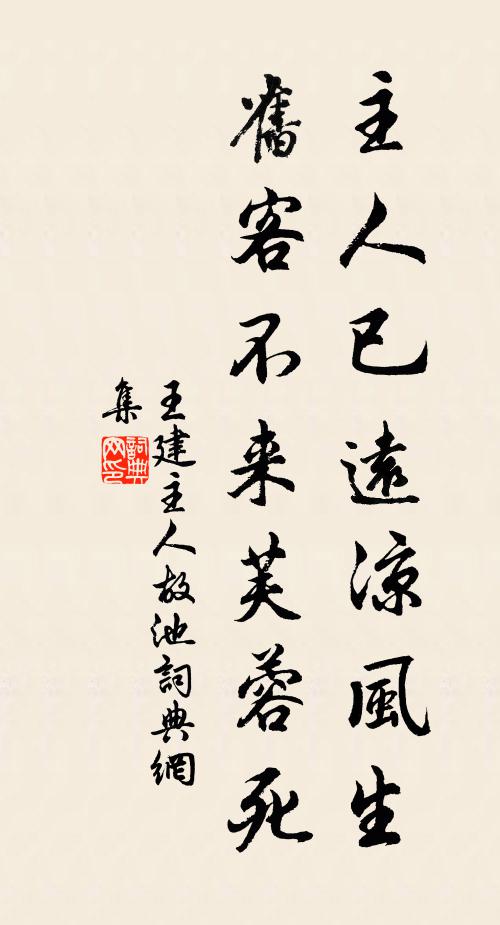 主人已遠涼風生
舊客不来芙蓉死
王建主人故池詞典網
集
詞典
网印